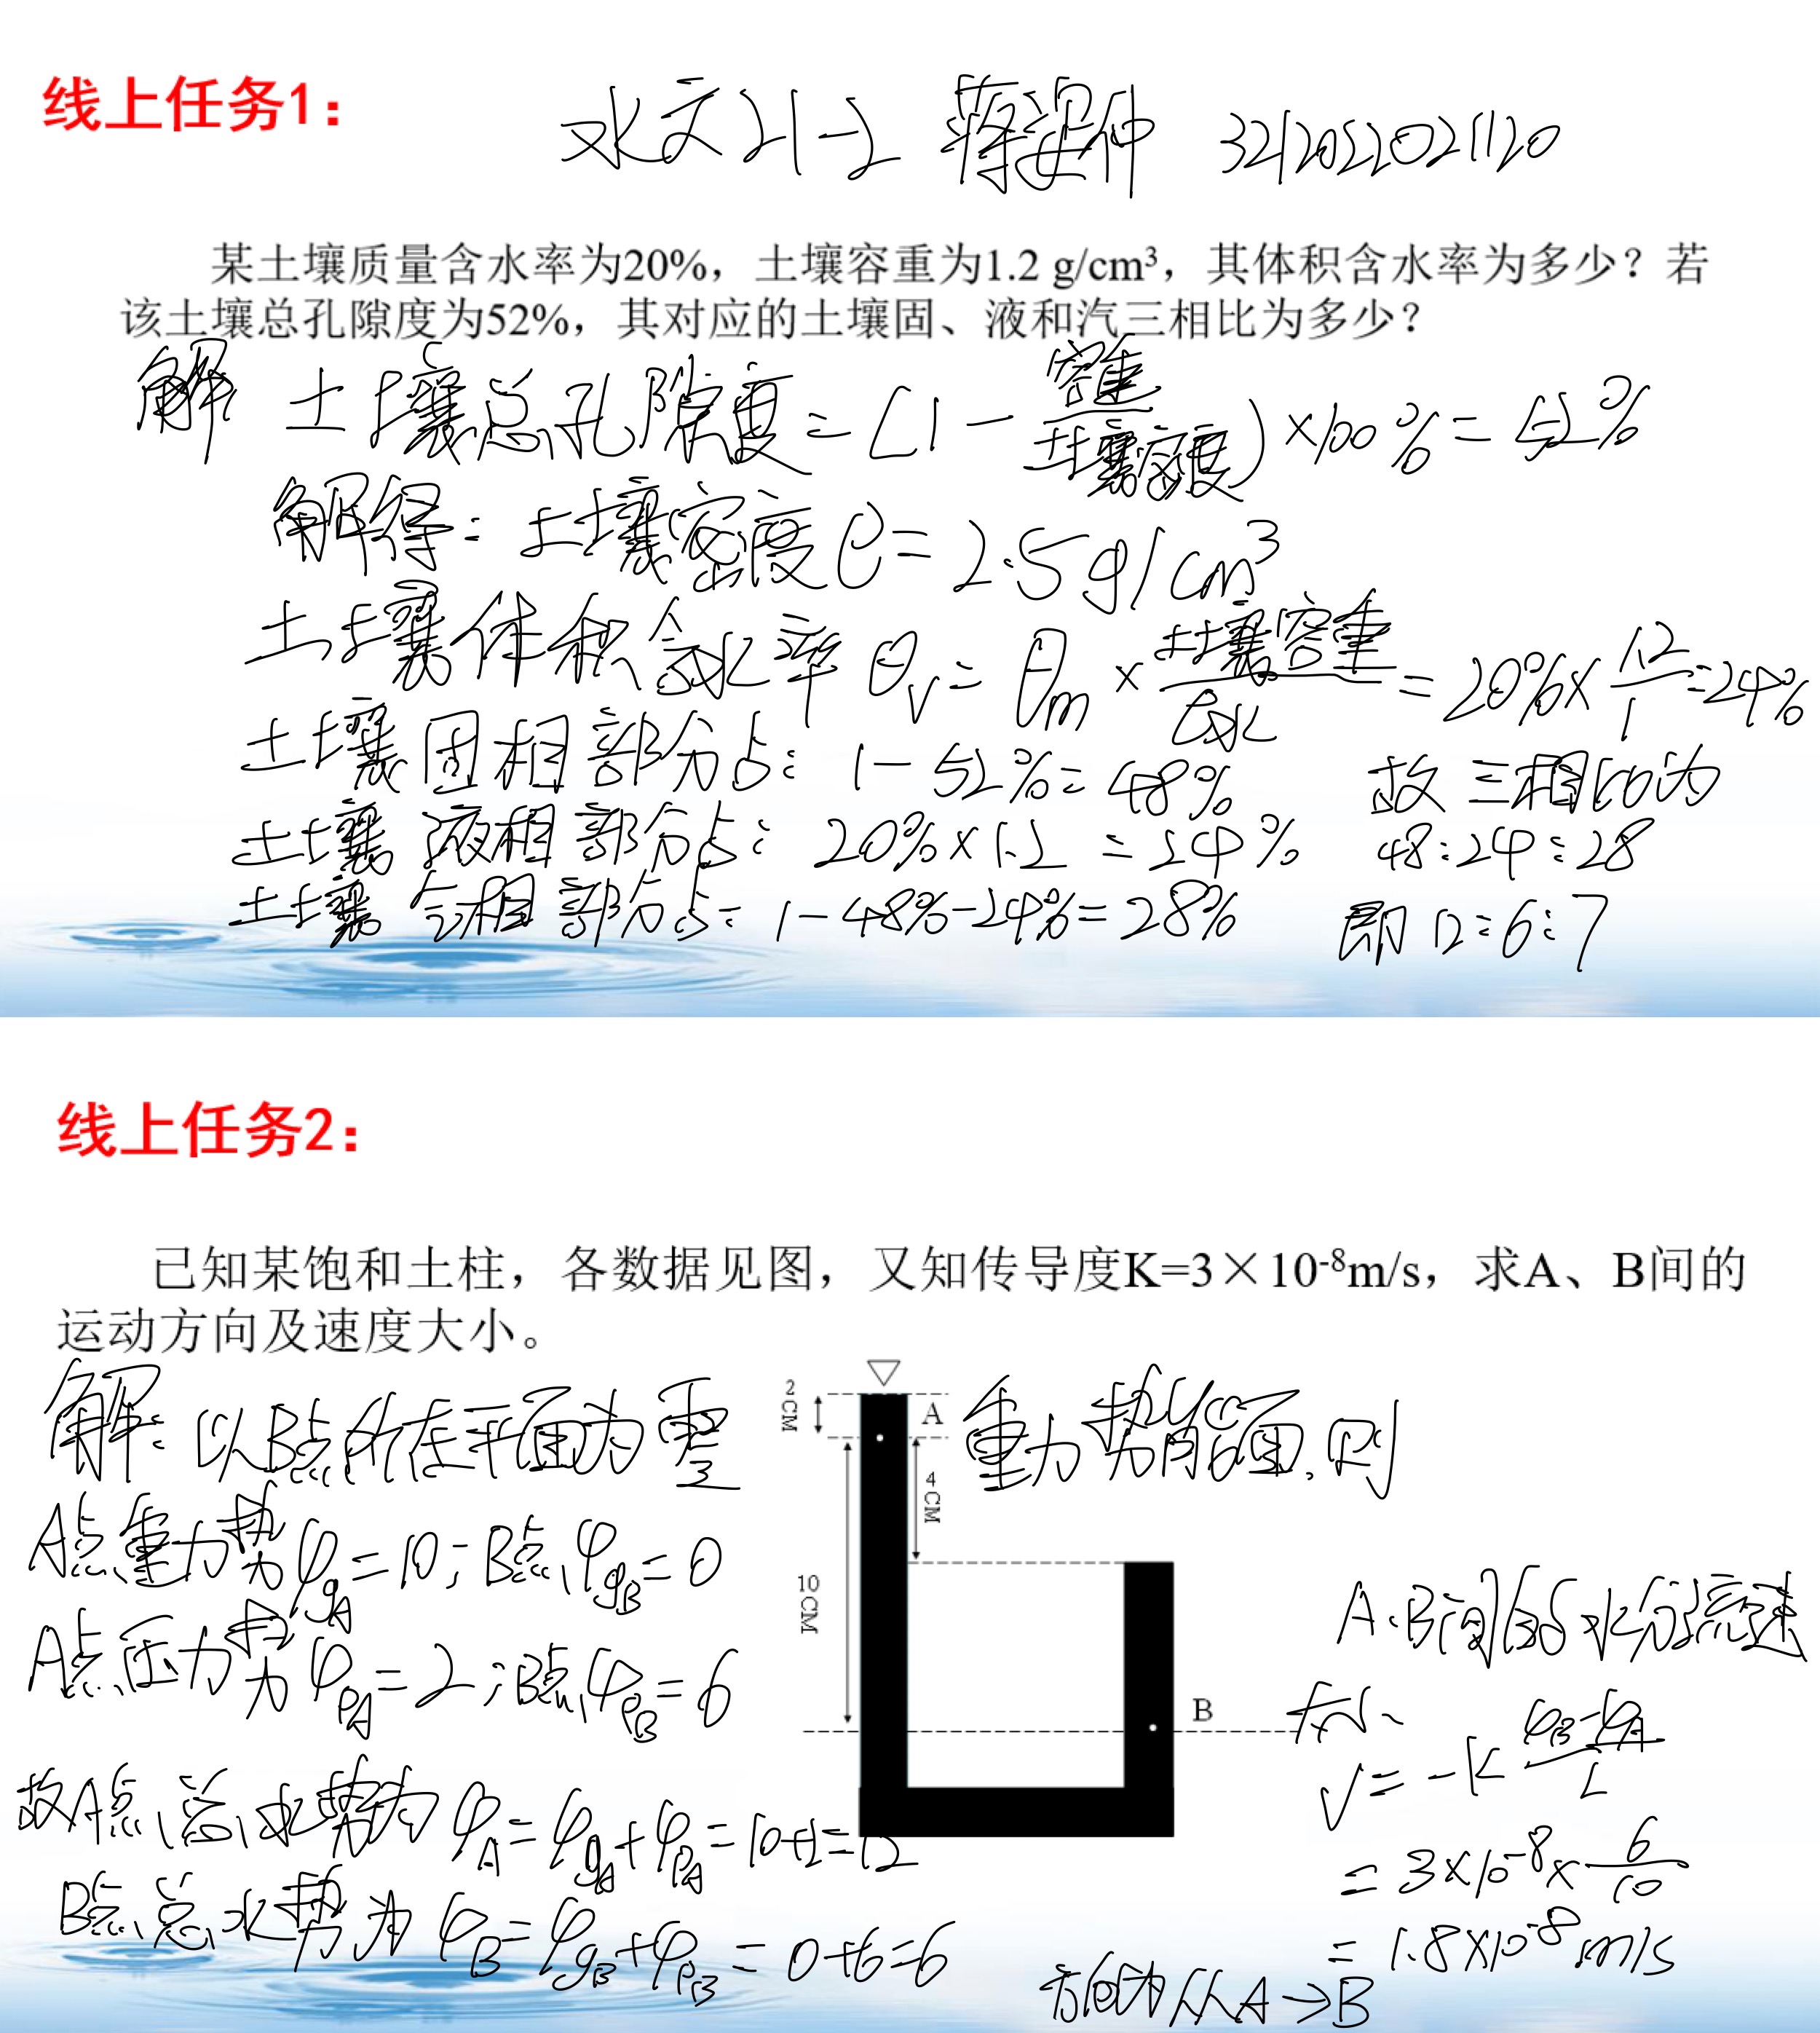 线上任务1：
水文21-2 蒋 仲 3212052021120
某土壤质量含水率为20%，土壤容重为1.2 g/cm³，其体积含水率为多少？若
该土壤总孔隙度为52%，其对应的土壤固、液和汽三相比为多少？
解 土壤总孔隙度=(1-容重/土壤密度)×100%=52%
解得：土壤密度ρ=2.5g/cm³
土壤体积含水率θv=θm×土壤容重/ρ水=20%×1.2/1=24%
土壤固相部分占：1-52%=48% 故三相比为
土壤液相部分占：20%×1.2=24% 48:24:28
土壤气相部分占：1-48%-24%=28% 即12:6:7
线上任务2：
已知某饱和土柱，各数据见图，又知传导度K=3×10⁻⁸m/s，求A、B间的
运动方向及速度大小。
解：以B点所在平面为零重力势能面，则
A点重力势φgA=10；B点φgB=0
A点压力势φPA=2；B点φPB=6
故A点总水势为φA=φgA+φPA=10+2=12
B点总水势为φB=φgB+φPB=0+6=6
2CM
A
4CM
10CM
B
A、B间的水分流速
大小、
V=-K φB-φA/L
=3×10⁻⁸×6/10
=1.8×10⁻⁸m/s
方向为从A→B